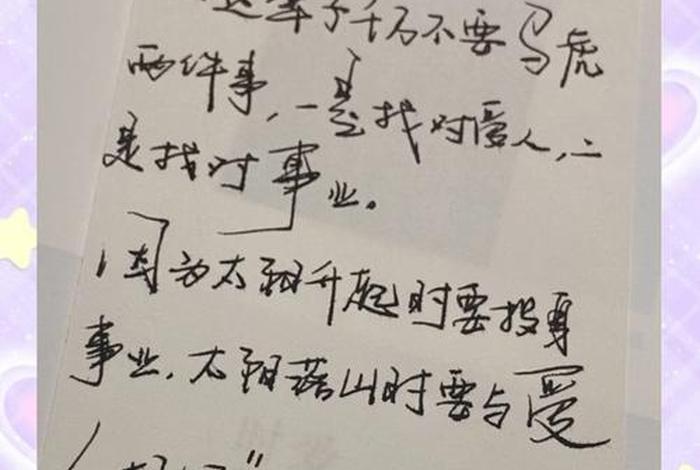 这辈子千万不要马虎
两件事，一是找对爱人，二
是找对事业。
因为太阳升起时要投身
事业，太阳落山时要与爱
人